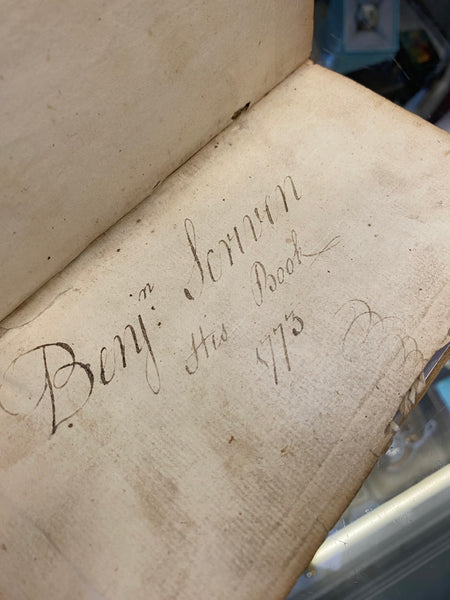 Benjn. Scrivin
His Book
1773